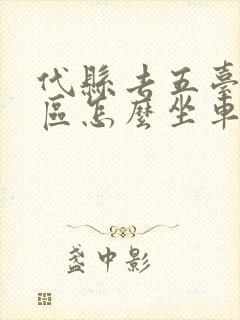 代縣去五臺
區怎麼坐車
盞中影